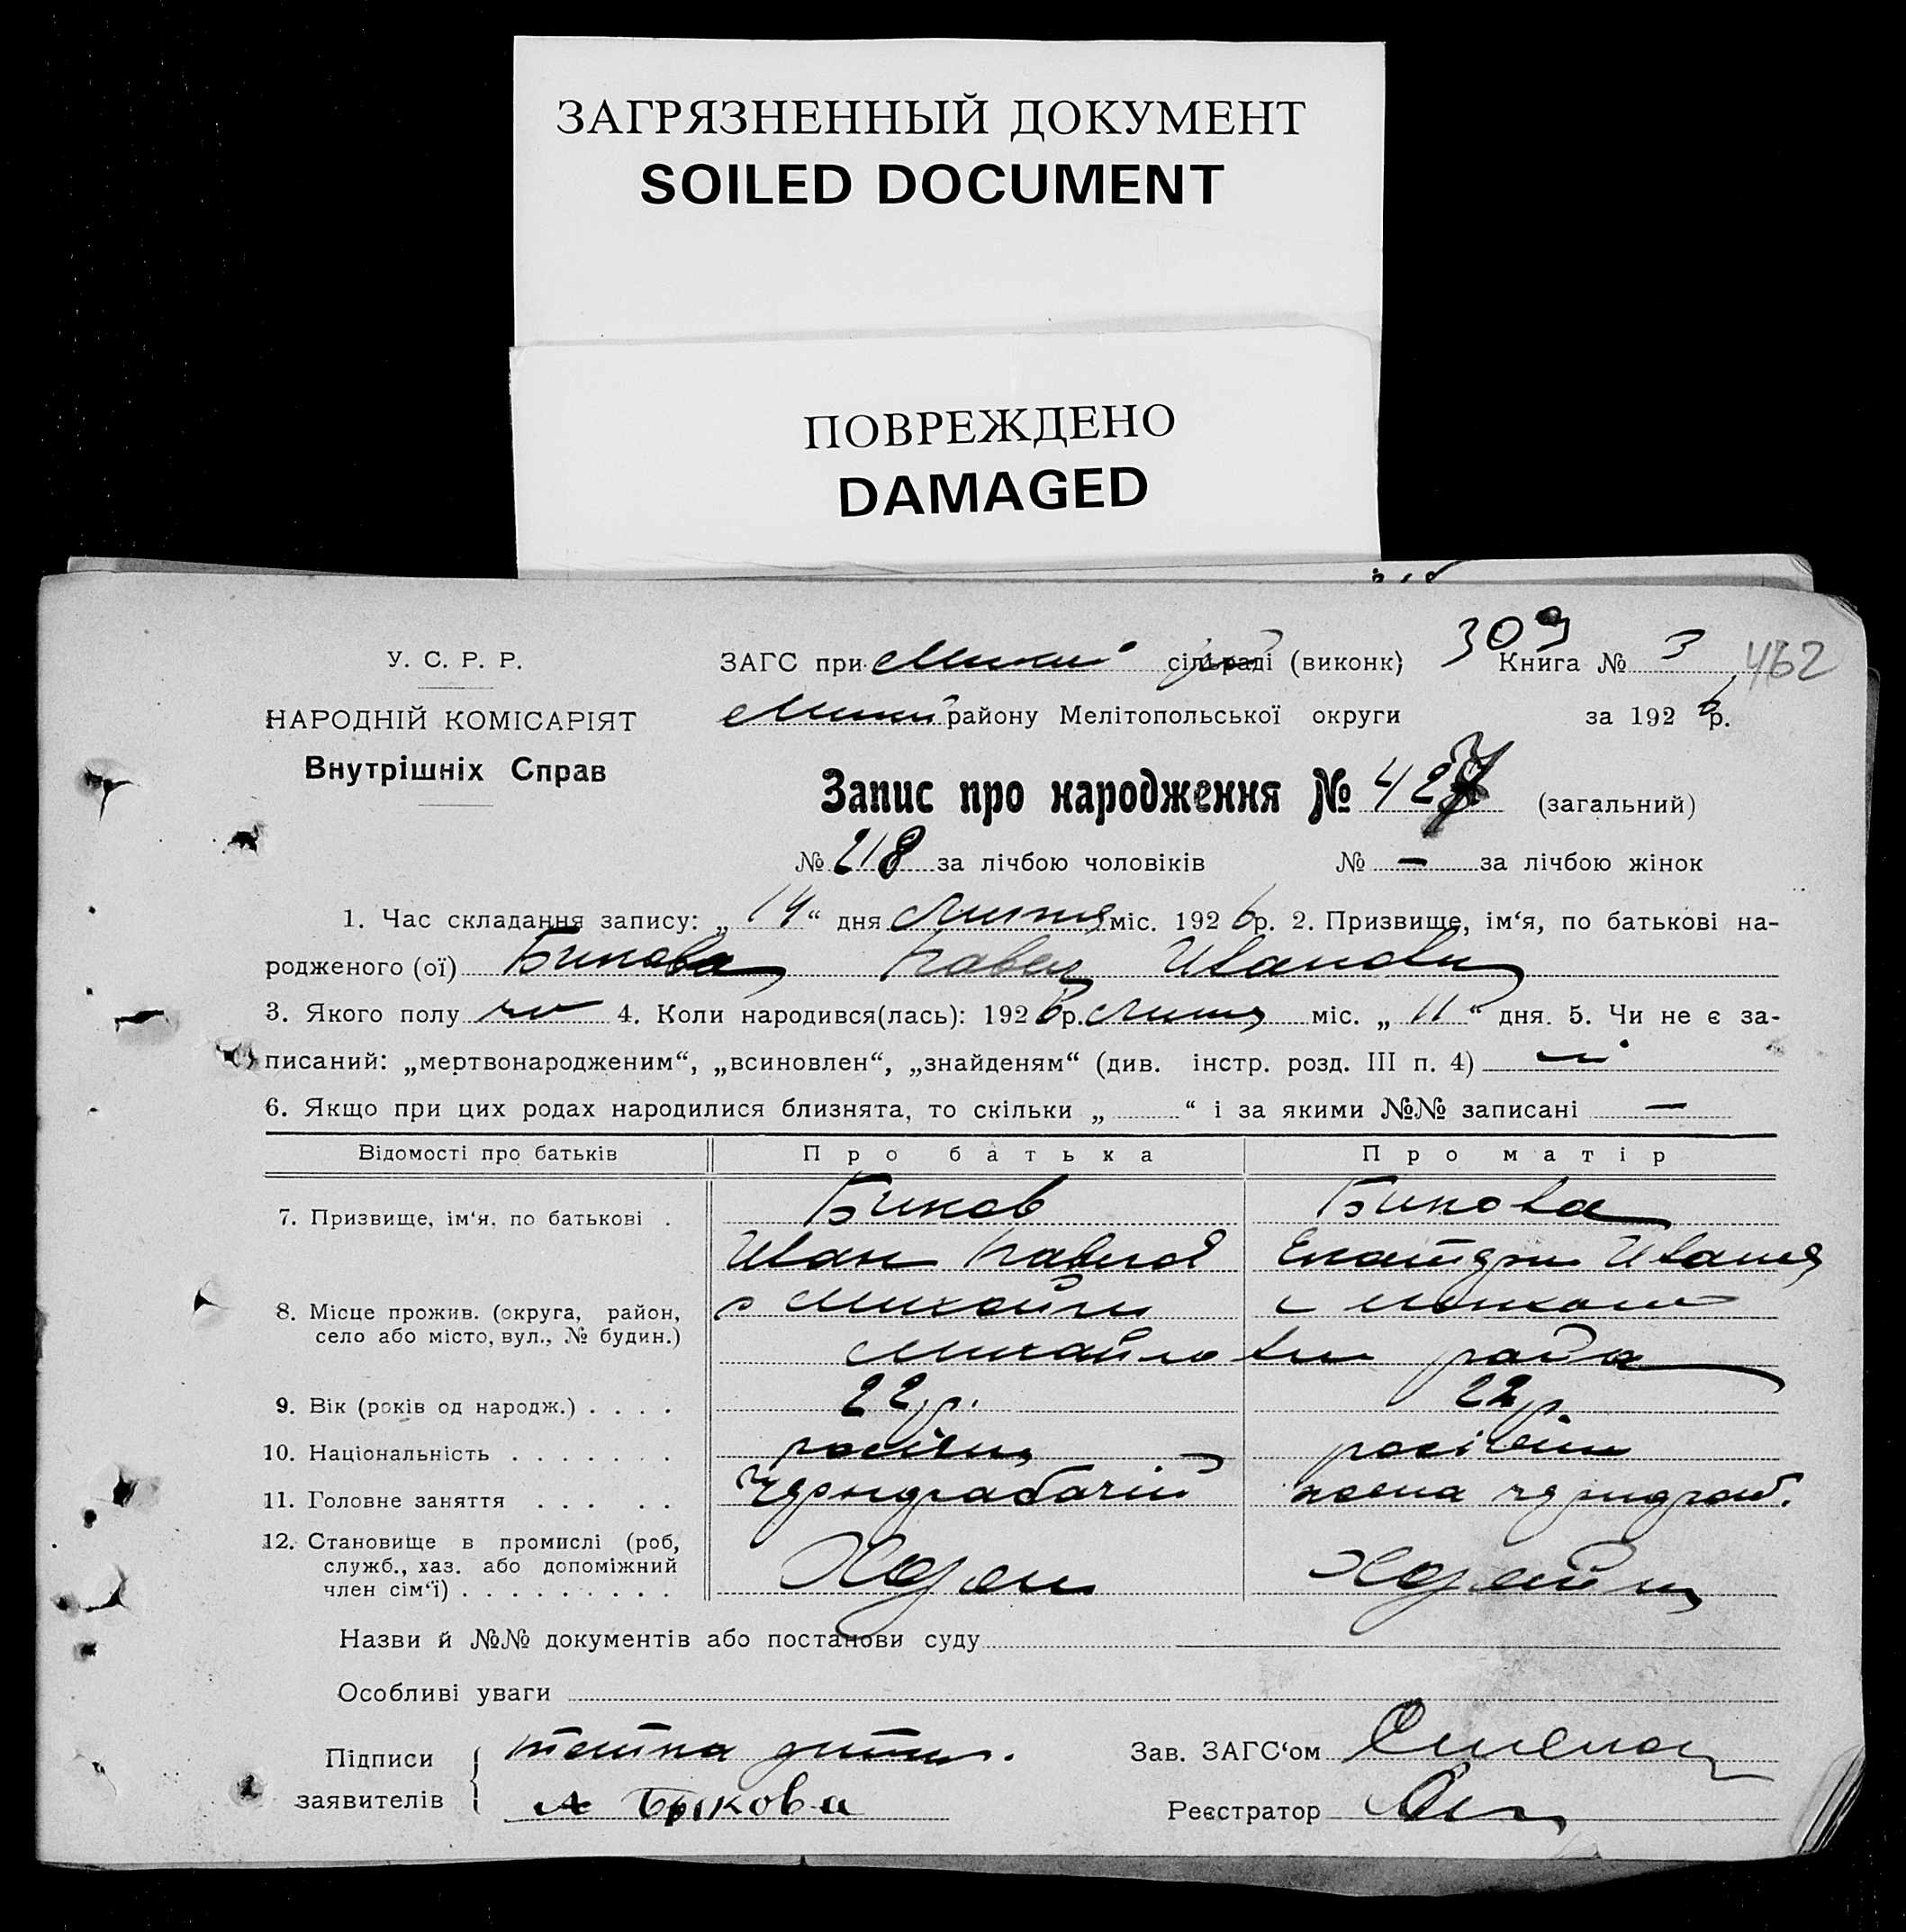 ЗАГРЯЗНЕННЫЙ ДОКУМЕНТ
SOILED DOCUMENT
ПОВРЕЖДЕНО
DAMAGED
У. С. Р. Р.
НАРОДНІЙ КОМІСАРІЯТ
Внутрішніх Справ
309
ЗАГС при сільраді (виконк) Книга № 3 462
району Мелітопольської округи за 1926 р.
Запис про народження № 427 (загальний)
№ 218 за лічбою чоловіків № — за лічбою жінок
1. Час складання запису: „ 14 “ дня липня міс. 1926 р. 2. Призвище, ім‘я, по батькові на-
родженого (ої) Бикова Павел Иванови
3. Якого полу чол 4. Коли народився(лась): 1926 р. липня міс. „ 11 “ дня. 5. Чи не є за-
писаний: „мертвонародженим“, „всиновлен“, „знайденям“ (див. інстр. розд. III п. 4) ні
6. Якщо при цих родах народилися близнята, то скільки „ “ і за якими №№ записані —
Відомості про батьків Про батька Про матір
7. Призвище, ім‘я. по батькові . Биков Бикова
Иван Павлов Екатери Ивания
8. Місце прожив. (округа, район,
село або місто, вул., № будин.)
с Михайли с
Михайловки района
9. Вік (років од народж.) . . . . 22 р. 22 р.
10. Національність . . . . . . . росіян росіян
11. Головне заняття . . . . . Чернорабачій жена чернораб.
12. Становище в промислі (роб,
служб., хаз. або допоміжний
член сім‘ї) . . . . . . . . .
Назви й №№ документів або постанови суду
Особливі уваги
Підписи
заявителів
тетка
А Быкова
Зав. ЗАГС‘ом
Реєстратор